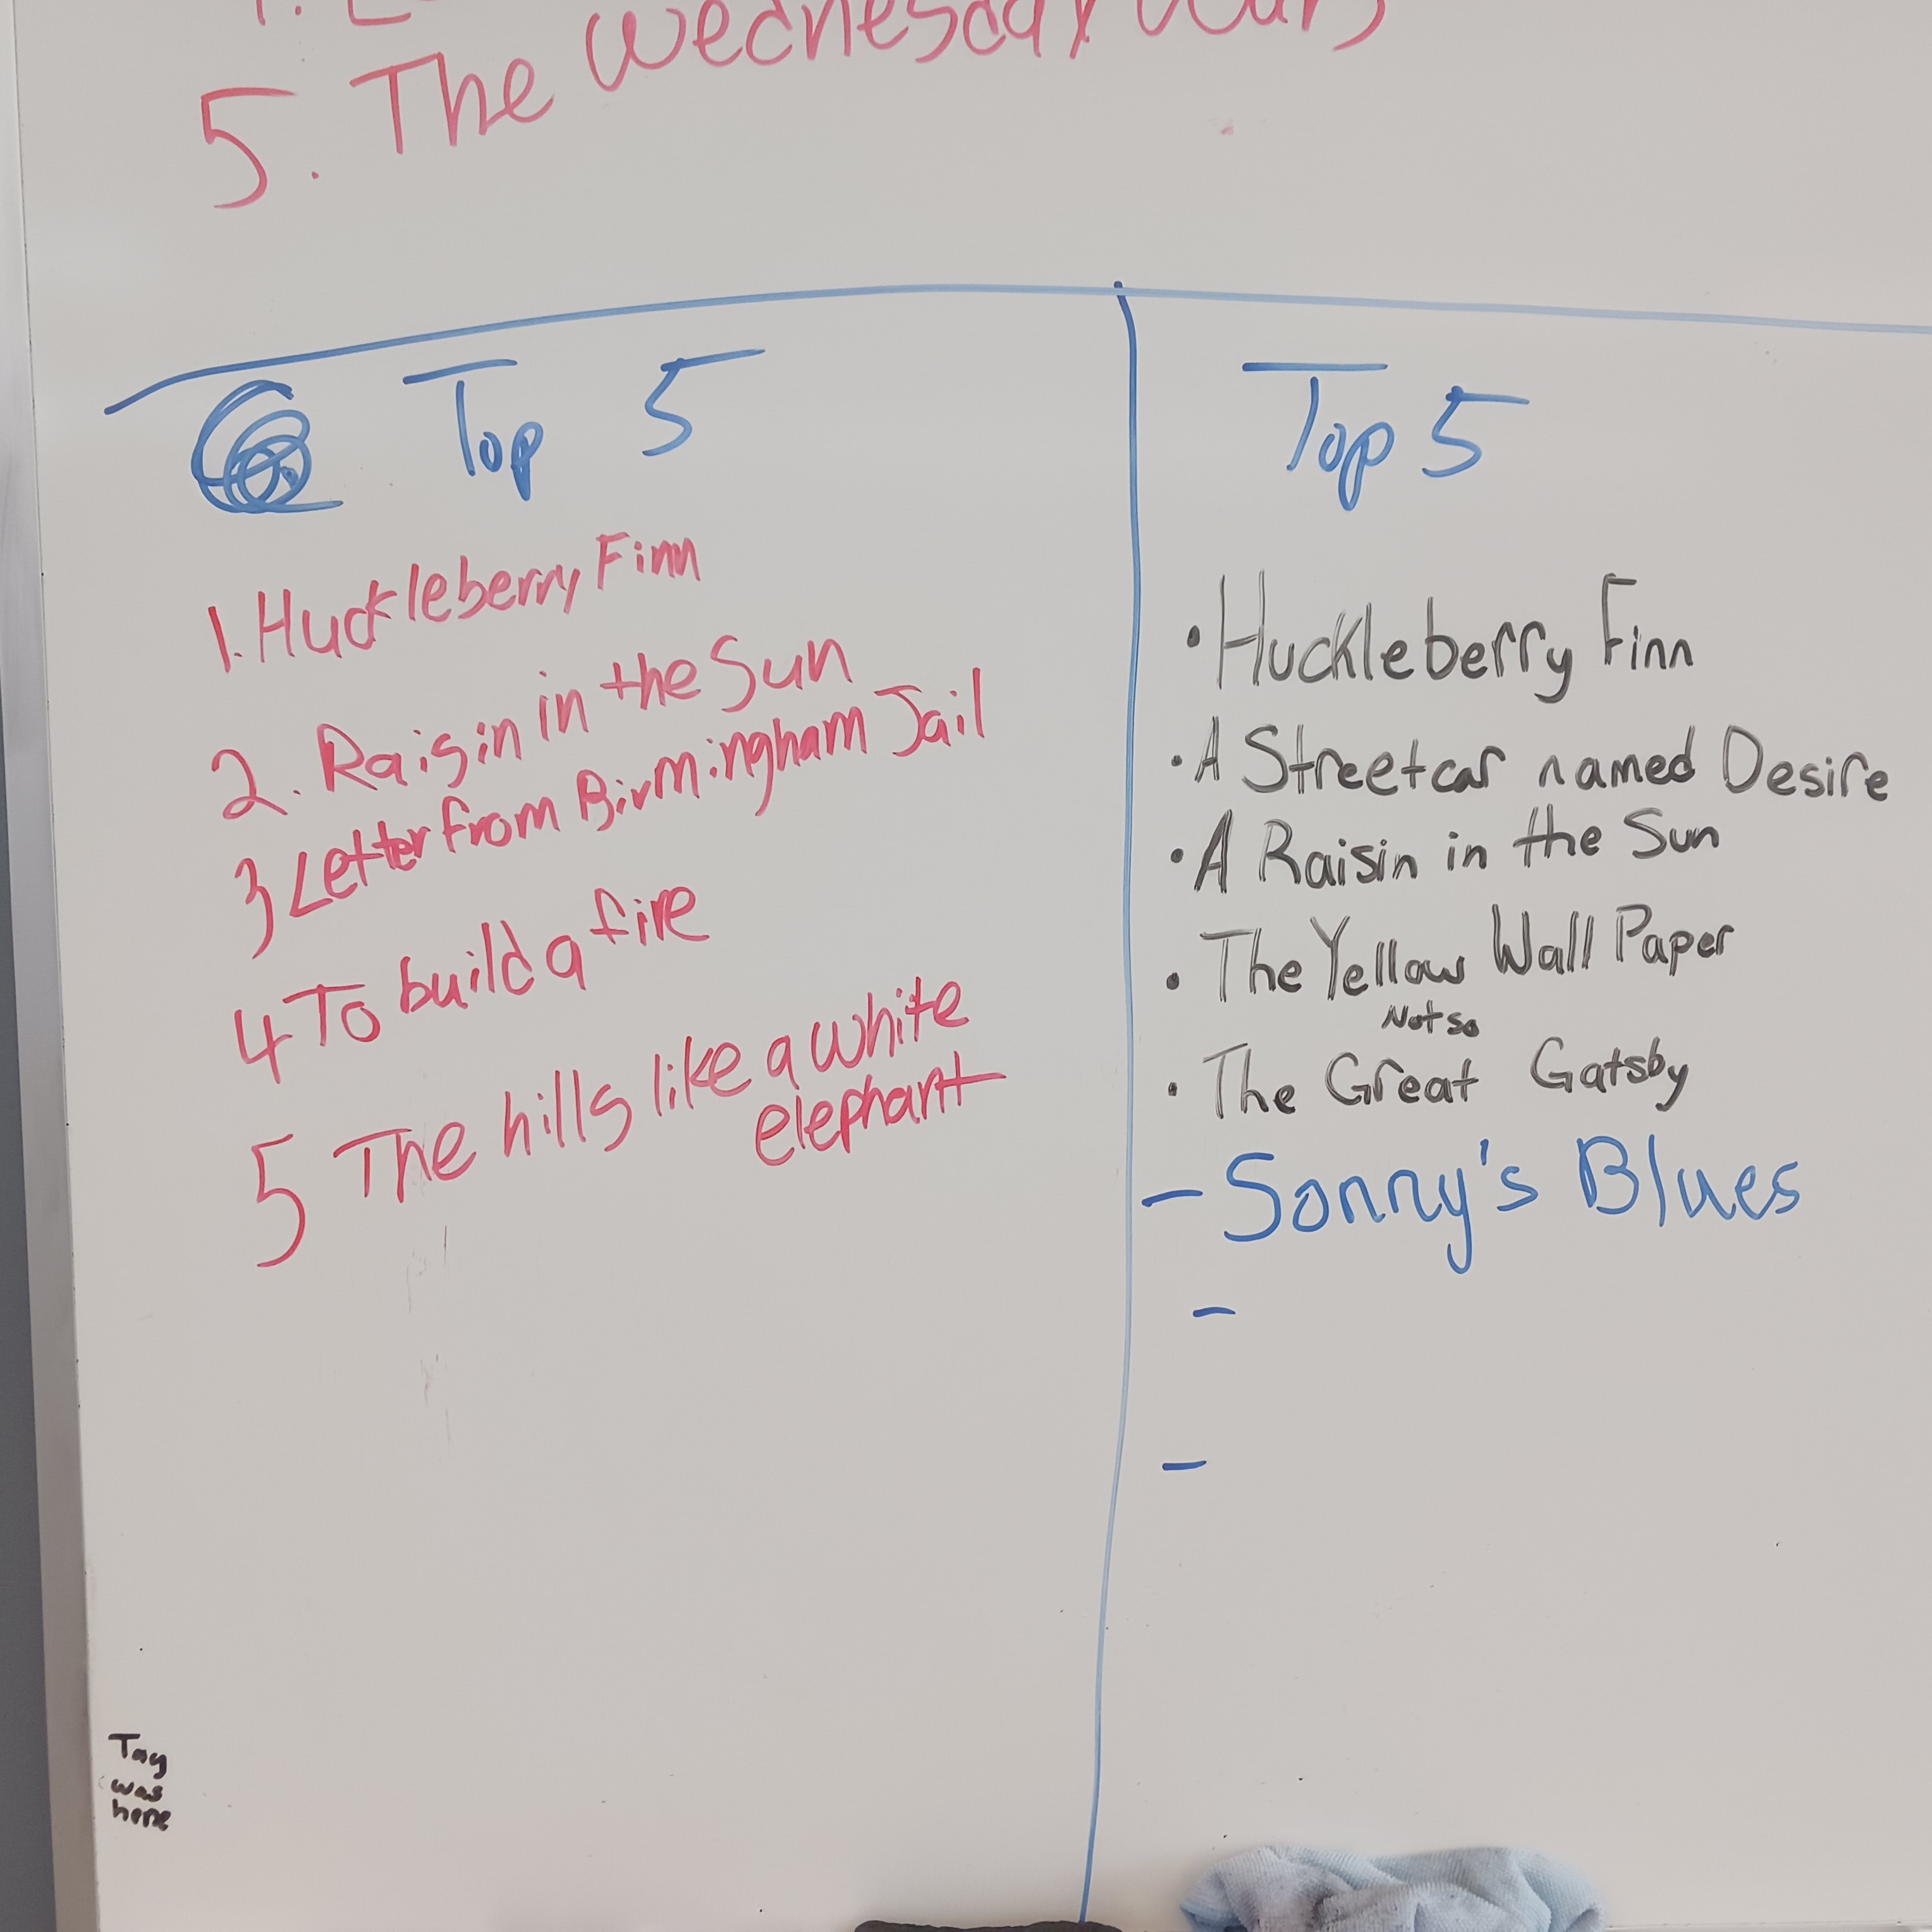 5. The Wednesday Wars
Top 5
1. Huckleberry Finn
2. Raisin in the Sun
3 Letter from Birmingham Jail
4 To build a fire
5 The hills like a white
elephant
Top 5
• Huckleberry Finn
• A Streetcar named Desire
• A Raisin in the Sun
• The Yellow Wall Paper
Not so
• The Great Gatsby
- Sonny's Blues
-
-
Tay
was
here